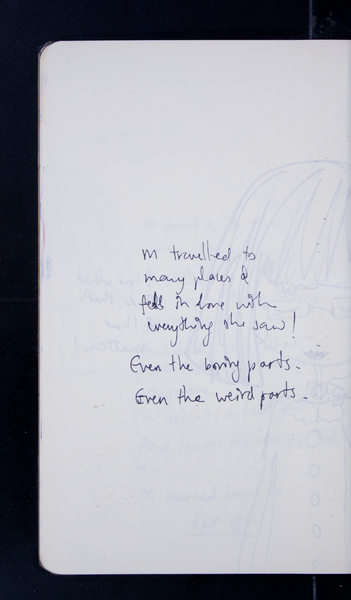 M travelled to
many places &
fell in love with
everything she saw!
Even the boring parts.
Even the weird parts.